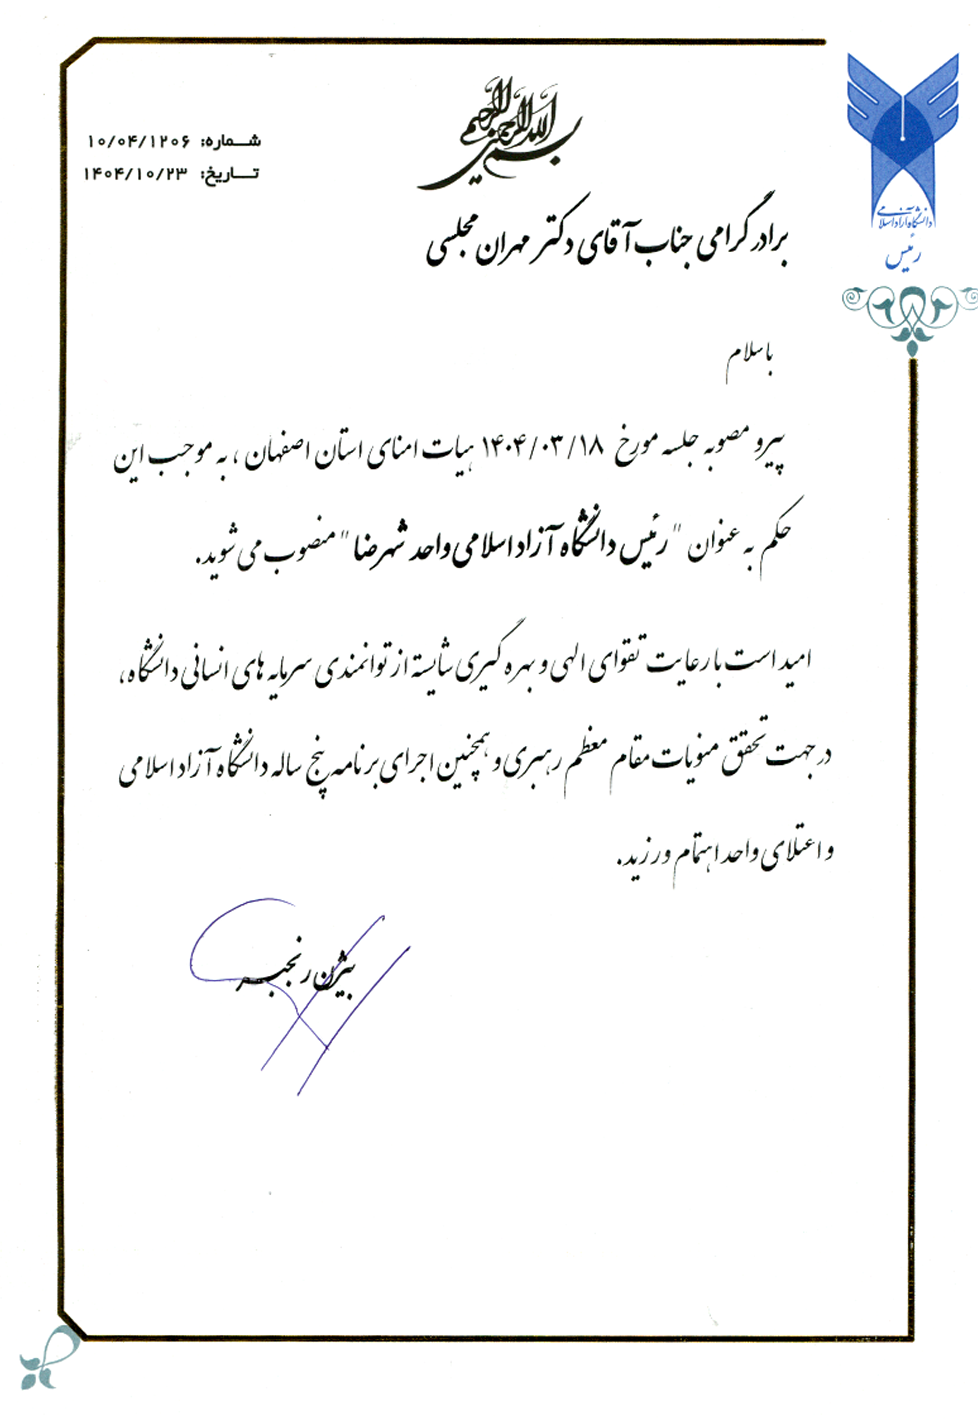 بسم الله الرحمن الرحیم
شماره: ۱۰/۰۴/۱۲۰۶
تاریخ: ۱۴۰۴/۱۰/۲۳
دانشگاه آزاد اسلامی
رئیس
برادر گرامی جناب آقای دکتر مهران مجلسی
با سلام
پیرو مصوبه جلسه مورخ ۱۴۰۴/۰۳/۱۸ هیات امنای استان اصفهان ، به موجب این
حکم به عنوان "رئیس دانشگاه آزاد اسلامی واحد شهرضا" منصوب می شوید.
امید است با رعایت تقوای الهی و بهره گیری شایسته از توانمندی سرمایه های انسانی دانشگاه،
در جهت تحقق منویات مقام معظم رهبری و همچنین اجرای برنامه پنج ساله دانشگاه آزاد اسلامی
و اعتلای واحد اهتمام ورزید.
بیژن رنجبر